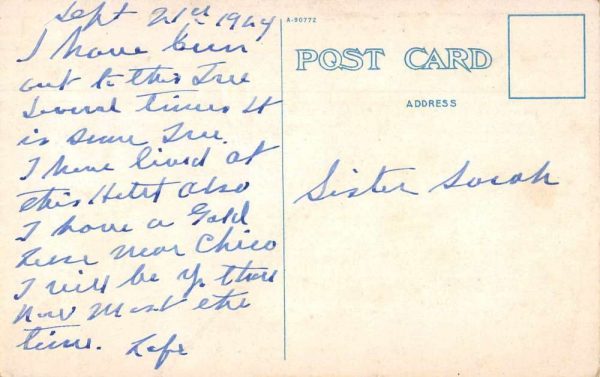 Sept 21st 1924
I have been
out to this Tree
Several times It
is some Tree.
I have lived at
this Hotel also
I have a Gold
near Chico
I will be up there
now most the
time. Lafe
A-90772
POST CARD
ADDRESS
Sister Sarah